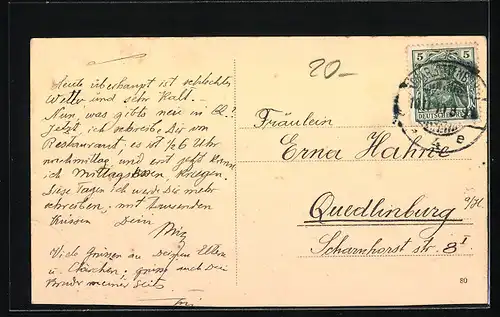 Heute überhaupt ist schlechtes
Wetter und sehr Kalt.
Nun, was gibts neu in Q!?
Jetzt, ich schreibe Dir vom
Restaurant, es ist ½6 Uhr
nachmittag, und erst jetzt kann
ich Mittagessen kriegen.
Diese Tagen ich werde Dir mehr
schreiben, mit tausenden
Küssen, Dein
Viele Grüssen an Deinen Eltern
u. grüss auch Dein
Bruder meiner seits.
20.-
5 5
DEUTSCHES REICH
Fräulein
Erna Hahne
Quedlinburg a/H
Scharnhorst str. 8 I
80